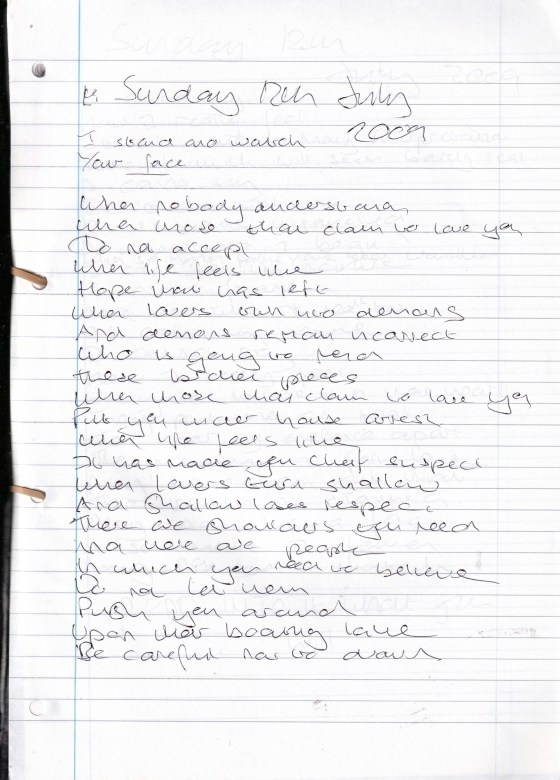 Sunday 12th July
2009
I stand and watch
Your face
When nobody understands
When those that claim to love you
Do not accept
When life feels like
Hope that has left
When lovers turn into demons
And demons remain incorrect
Who is going to mend
These broken pieces
When those that claim to love you
Put you under house arrest
When life feels like
It has made you chief suspect
When lovers turn shallow
And shallow loses respect
There are shoulders you need
And there are people
In which you need to believe
Do not let them
Push you around
Upon their boating lake
Be careful not to drown